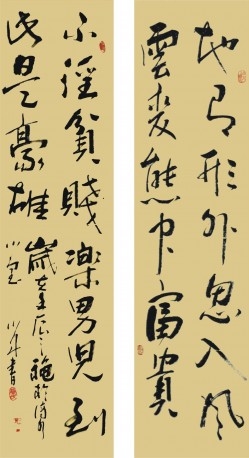 地有形外思入風
雲變態中富貴
不淫貧賤樂男兒到
此是豪雄 歲在壬辰
書